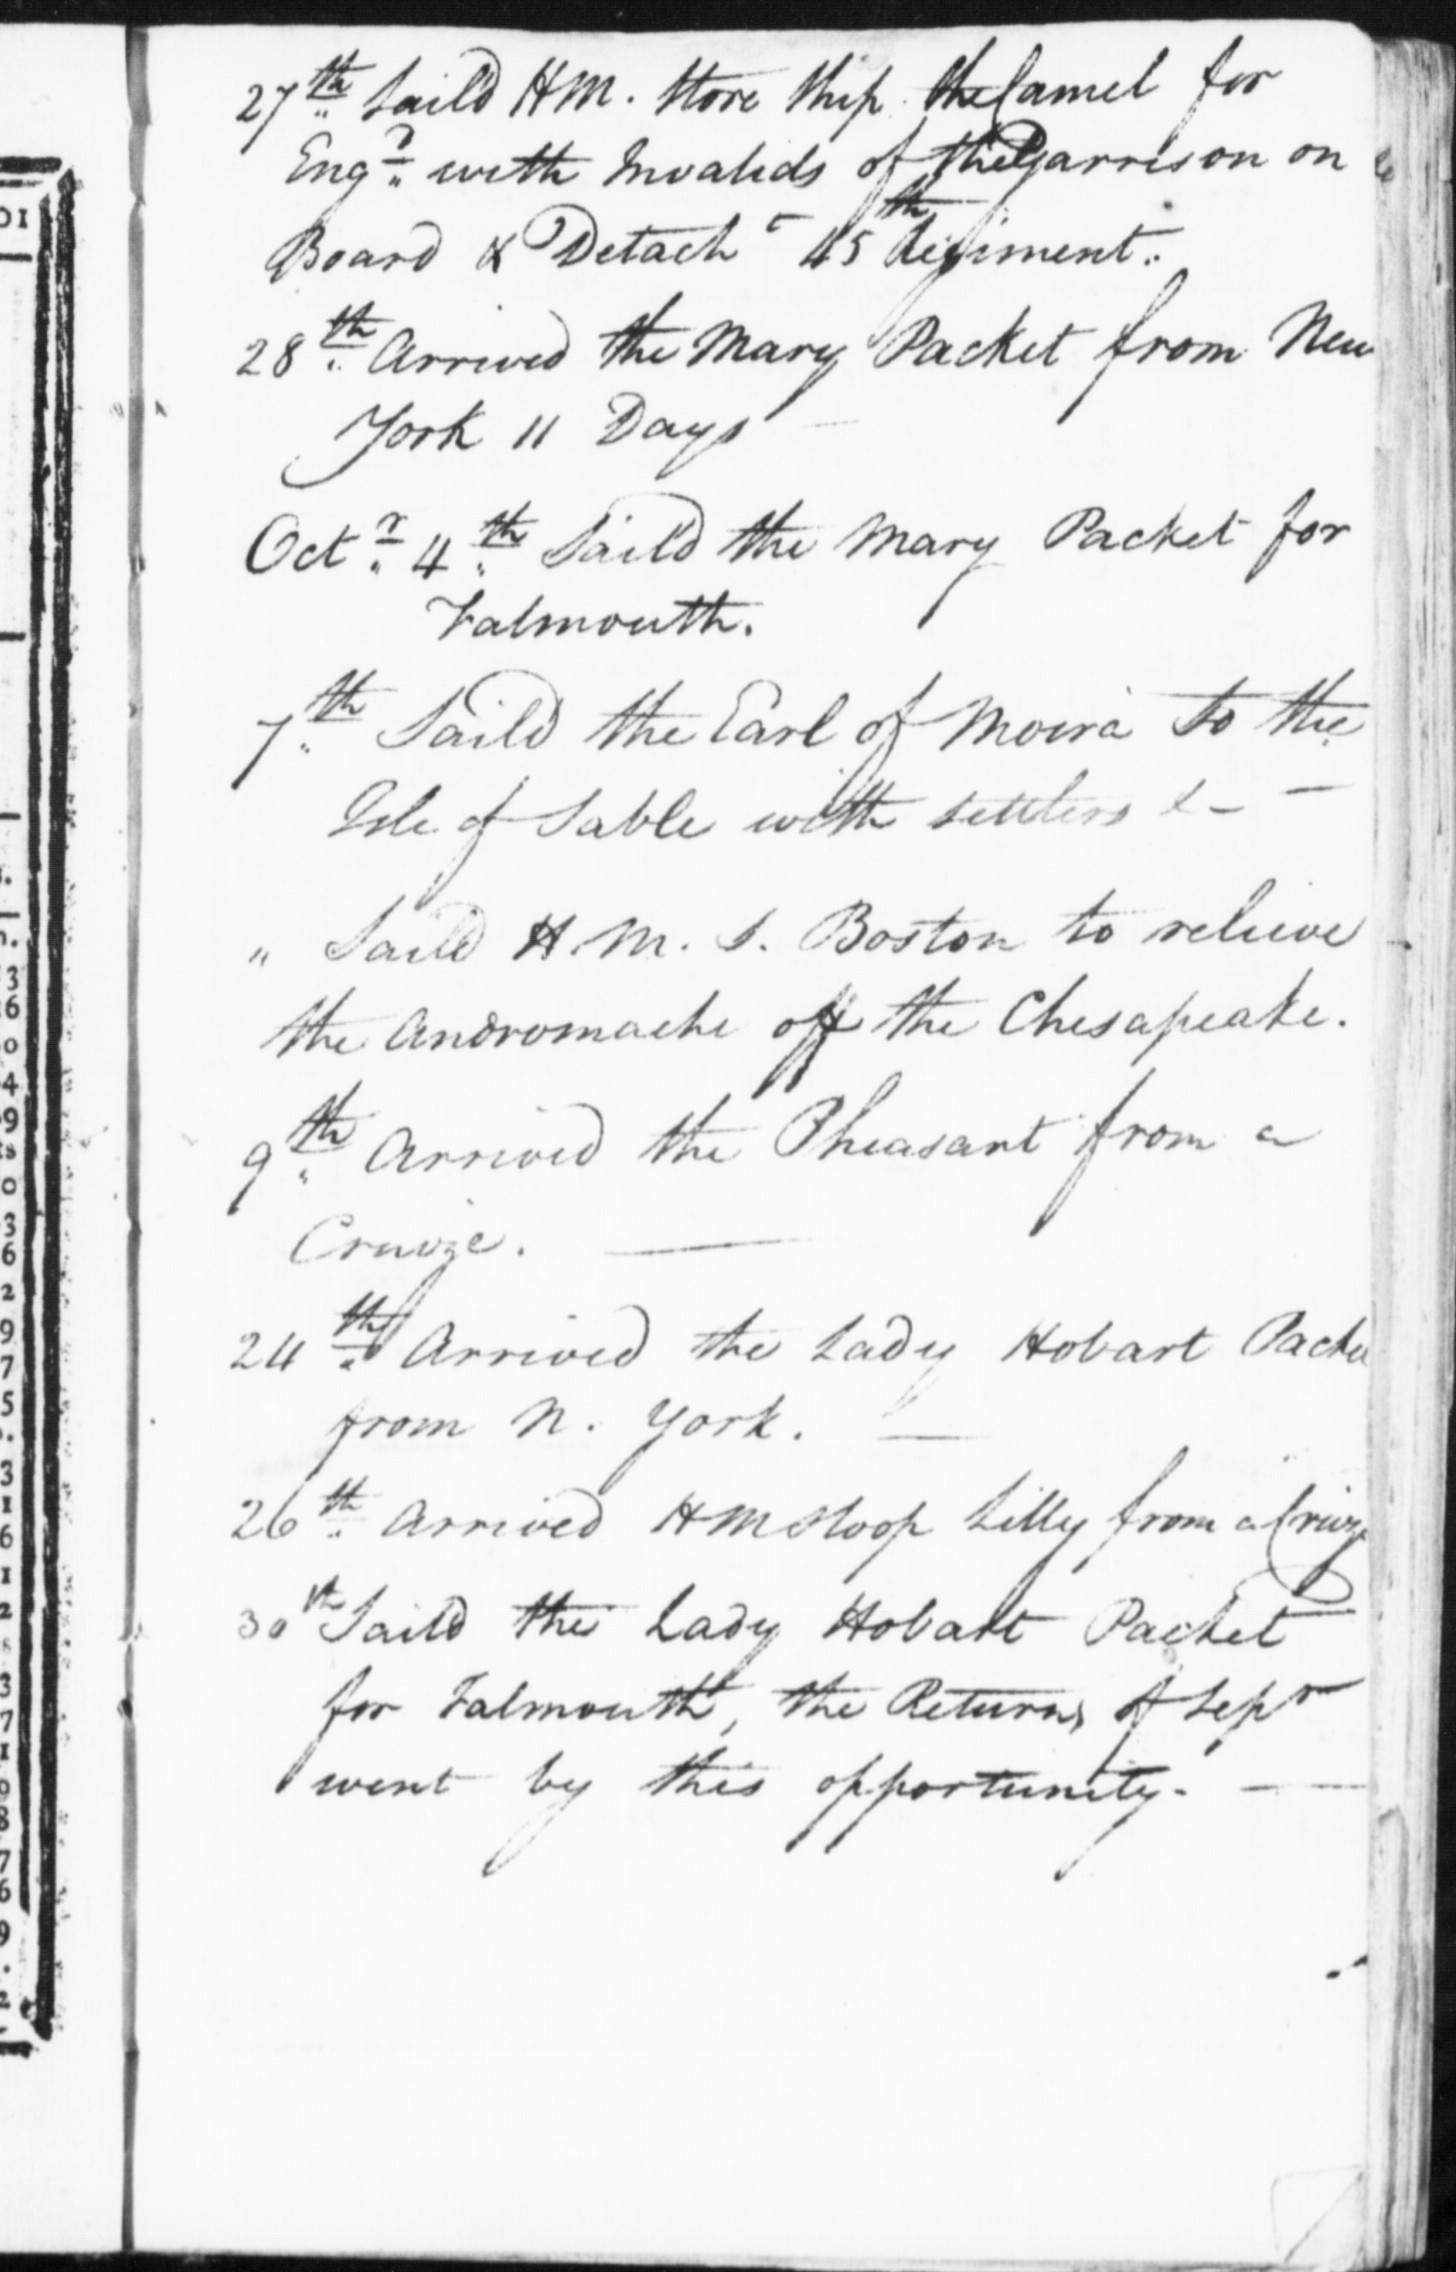 27th Saild HM. Store Ship the Camel for
Engd with Invalids of the Garrison on
Board & Detacht 45th Regiment.
28th Arrived the Mary Packet from New
York 11 Days
Octr 4th Saild the Mary Packet for
Falmouth.
7th Saild the Earl of Moira to the
Isle of Sable with settlers &
" Saild H.M.S. Boston to relieve
the Andromache off the Chesapeake.
9th Arrived the Pheasant from a
Cruize.
24th Arrived the Lady Hobart Packet
from N. York.
26th Arrived HM Sloop Lilly from a Cruize
30th Saild the Lady Hobart Packet
for Falmouth, the Returns of Sepr
went by this opportunity.